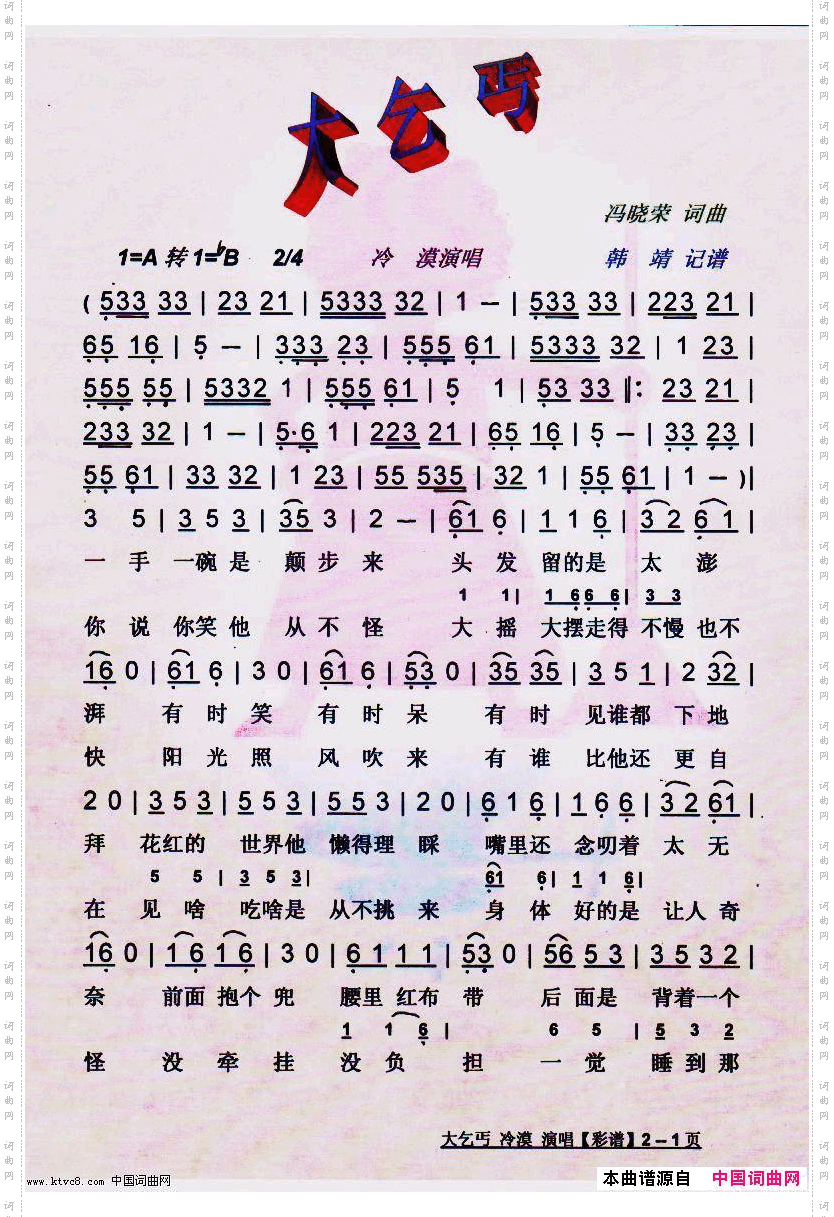 大乞丐
冯晓荣 词曲
1=A 转 1=♭B 2/4 冷 漠演唱 韩 靖 记谱
( 533 33 | 23 21 | 5333 32 | 1 – | 533 33 | 223 21 |
65 16 | 5 – | 333 23 | 555 61 | 5333 32 | 1 23 |
555 55 | 5332 1 | 555 61 | 5 1 | 53 33 ‖: 23 21 |
233 32 | 1 – | 5·6 1 | 223 21 | 65 16 | 5 – | 33 23 |
55 61 | 33 32 | 1 23 | 55 535 | 32 1 | 55 61 | 1 – )|
3 5 | 3 5 3 | 35 3 | 2 – | 61 6 | 1 1 6 | 3 2 6 1 |
一 手 一碗 是 颠 步 来 头 发 留的是 太 澎
1 1| 1 6 6 6| 3 3
你 说 你笑他 从 不 怪 大 摇 大摆走得 不慢 也不
16 0 | 61 6 | 3 0 | 61 6 | 53 0 | 35 35 | 3 5 1 | 2 32 |
湃 有 时 笑 有 时 呆 有 时 见谁都 下 地
快 阳 光 照 风 吹 来 有 谁 比他还 更 自
2 0 | 3 5 3 | 5 5 3 | 5 5 3 | 2 0 | 6 1 6 | 1 6 6 | 3 2 61 |
拜 花红的 世界他 懒得理 睬 嘴里还 念叨着 太 无
5 5 | 3 5 3| 61 6| 1 1 6|
在 见 啥 吃啥是 从不挑 来 身 体 好的是 让人 奇
16 0 | 1 6 1 6 | 3 0 | 6 1 1 1 | 53 0 | 56 5 3 | 3 5 3 2 |
奈 前面 抱个 兜 腰里 红布 带 后 面是 背着一个
1 1 6 | 6 5 | 5 3 2
怪 没 牵 挂 没 负 担 一 觉 睡到那
大乞丐 冷漠 演唱【彩谱】2－1页
www.ktvc8.com 中国词曲网
本曲谱源自 中国词曲网